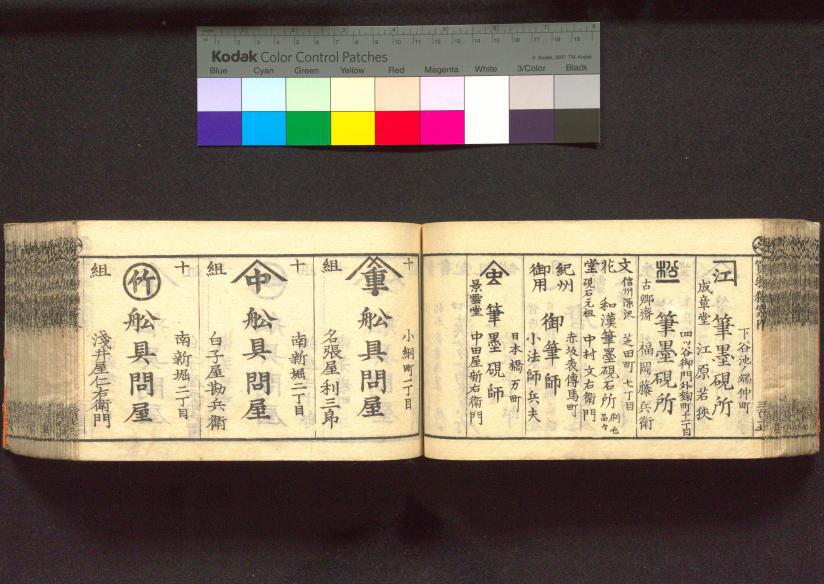 Kodak Color Control Patches
© Kodak, 2007 TM: Kodak
Blue Cyan Green Yellow Red Magenta White 3/Color Black
下谷池ノ端仲町
江 筆墨硯所
成章堂 江原若狭
四ッ谷御門外麹町十二丁目
筆墨硯所
古郷齋 福岡藤兵衛
芝田町七丁目
文花堂 和漢筆墨硯石所
信州深沢
硯石元祖 中村文右衛門
赤坂表傳馬町
紀州御用 御筆師
小法師兵夫
日本橋万町
筆墨硯師
景雲堂 中田屋新右衛門
小網町二丁目
十組 重 舩具問屋
名張屋利三郎
南新堀二丁目
十組 中 舩具問屋
白子屋勘兵衛
南新堀二丁目
十組 竹 舩具問屋
淺井屋仁右衛門